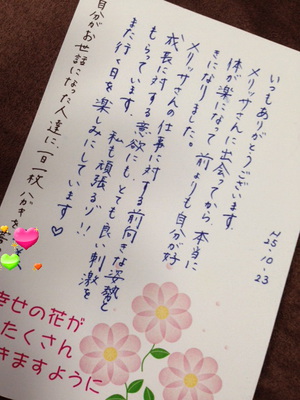 N25.10.23
いつもありがとうございます。
メリッサさんに出会ってから、本当に
体が楽になって前よりも自分が好
きになりました。
メリッサさんの仕事に対する前向きな姿勢と
成長に対する意欲にも、とても良い刺激を
もらっています。私も頑張るゾ!!
また行く日を楽しみにしています♡
自分がお世話になった人達に、一日一枚ハガキを
幸せの花が
たくさん
きますように